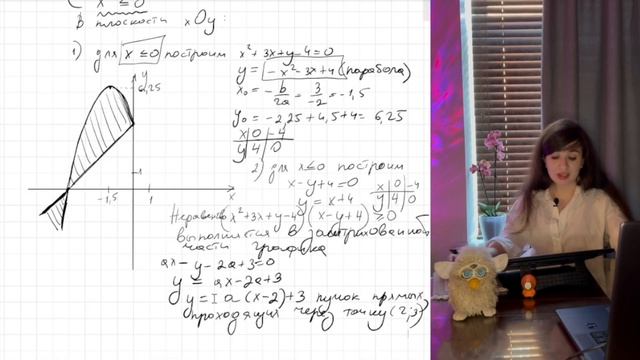 x ≤ 0
в плоскости xOy:
1) для x ≤ 0 построим x² + 3x + y - 4 = 0
y = -x² - 3x + 4 (парабола)
x₀ = -b/2a = 3/-2 = -1,5
y₀ = -2,25 + 4,5 + 4 = 6,25
x | 0 | -4
y | 4 | 0
2) для x ≤ 0 построим
x - y + 4 = 0
y = x + 4
x | 0 | -4
y | 4 | 0
Неравенство (x² + 3x + y - 4)(x - y + 4) ≥ 0
выполняется в заштрихованной
части графика
ax - y - 2a + 3 = 0
y = ax - 2a + 3
y = a(x - 2) + 3 пучок прямых,
проходящих через точку (2; 3)
y
6,25
1
-1,5
1
x